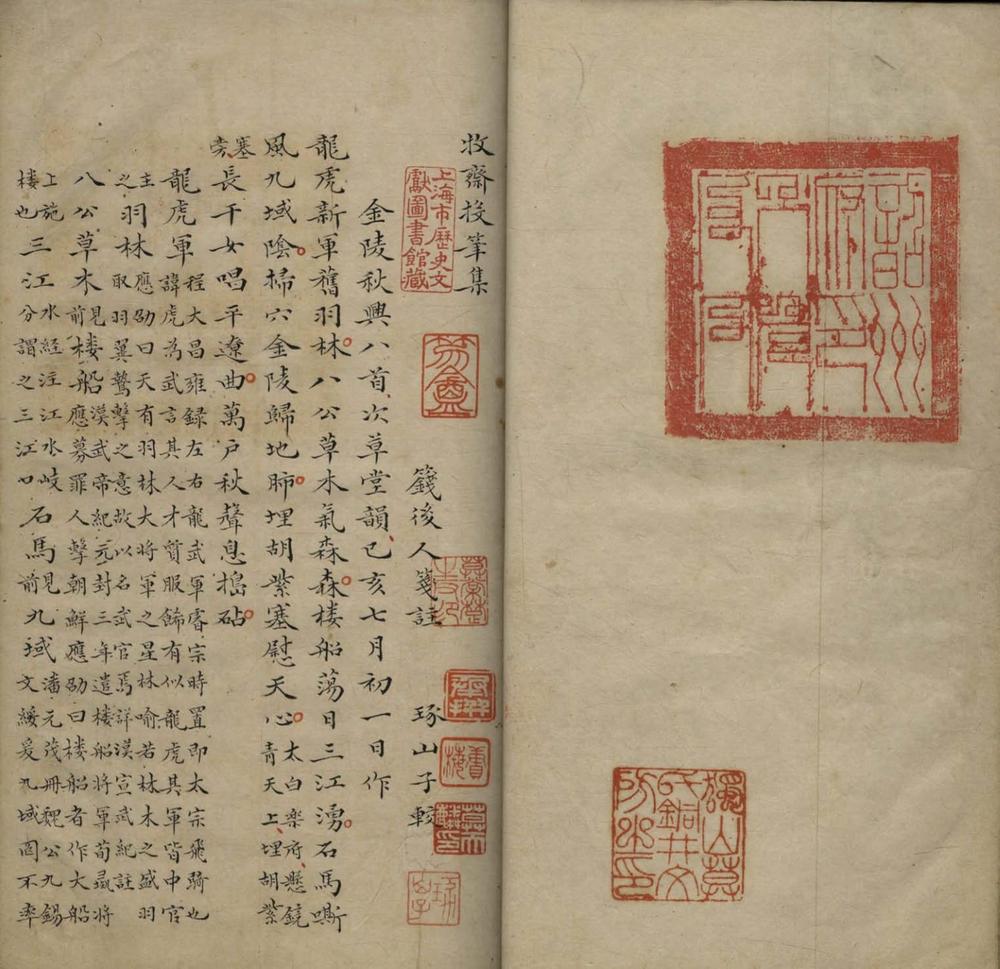 獨山莫
氏銅井文
房之印
牧齋投筆集
上海市歷史文
獻圖書館藏
籛後人箋註 琢山子較
金陵秋興八首次草堂韻己亥七月初一日作
龍虎新軍舊羽林八公草木氣森森楼船蕩日三江湧石馬嘶
風九域陰掃穴金陵歸地肺埋胡紫塞慰天心太白樂府懸鏡
青天上埋胡紫
塞旁長干女唱平遼曲萬户秋聲息搗砧
龍虎軍程大昌雍録左右龍武軍睿宗時置即太宗飛騎也
諱虎為武言其人才質服飾有似龍虎其軍皆中官
主之羽林應劭曰天有羽林大將軍之星林喻若林木之盛羽
取羽翼鷙擊之意故以名武官焉詳漢宣武紀註
八公草木見前楼船漢武帝紀元封三年遣楼船將軍荀彘將
應募罪人擊朝鮮應劭曰楼船者作大船
上施楼也三江水經注江水岐
分謂之三江口石馬見前九域潘元茂冊魏公九錫
文綏爰九域罔不率